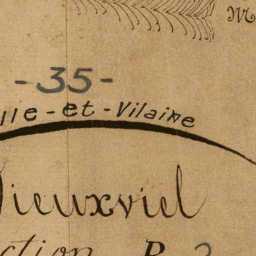 -35-
lle-et-Vilaine
Vieuxviel
ction B 2